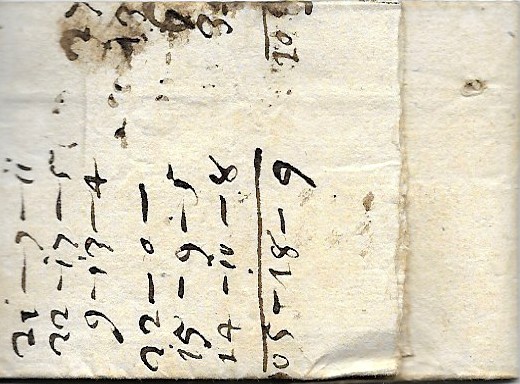 21 — 7 — 11
22 — 17 — 5
9 — 13 — 4
22 — 0 —
15 — 9 — 5
14 — 10 — 8
05 — 18 — 9